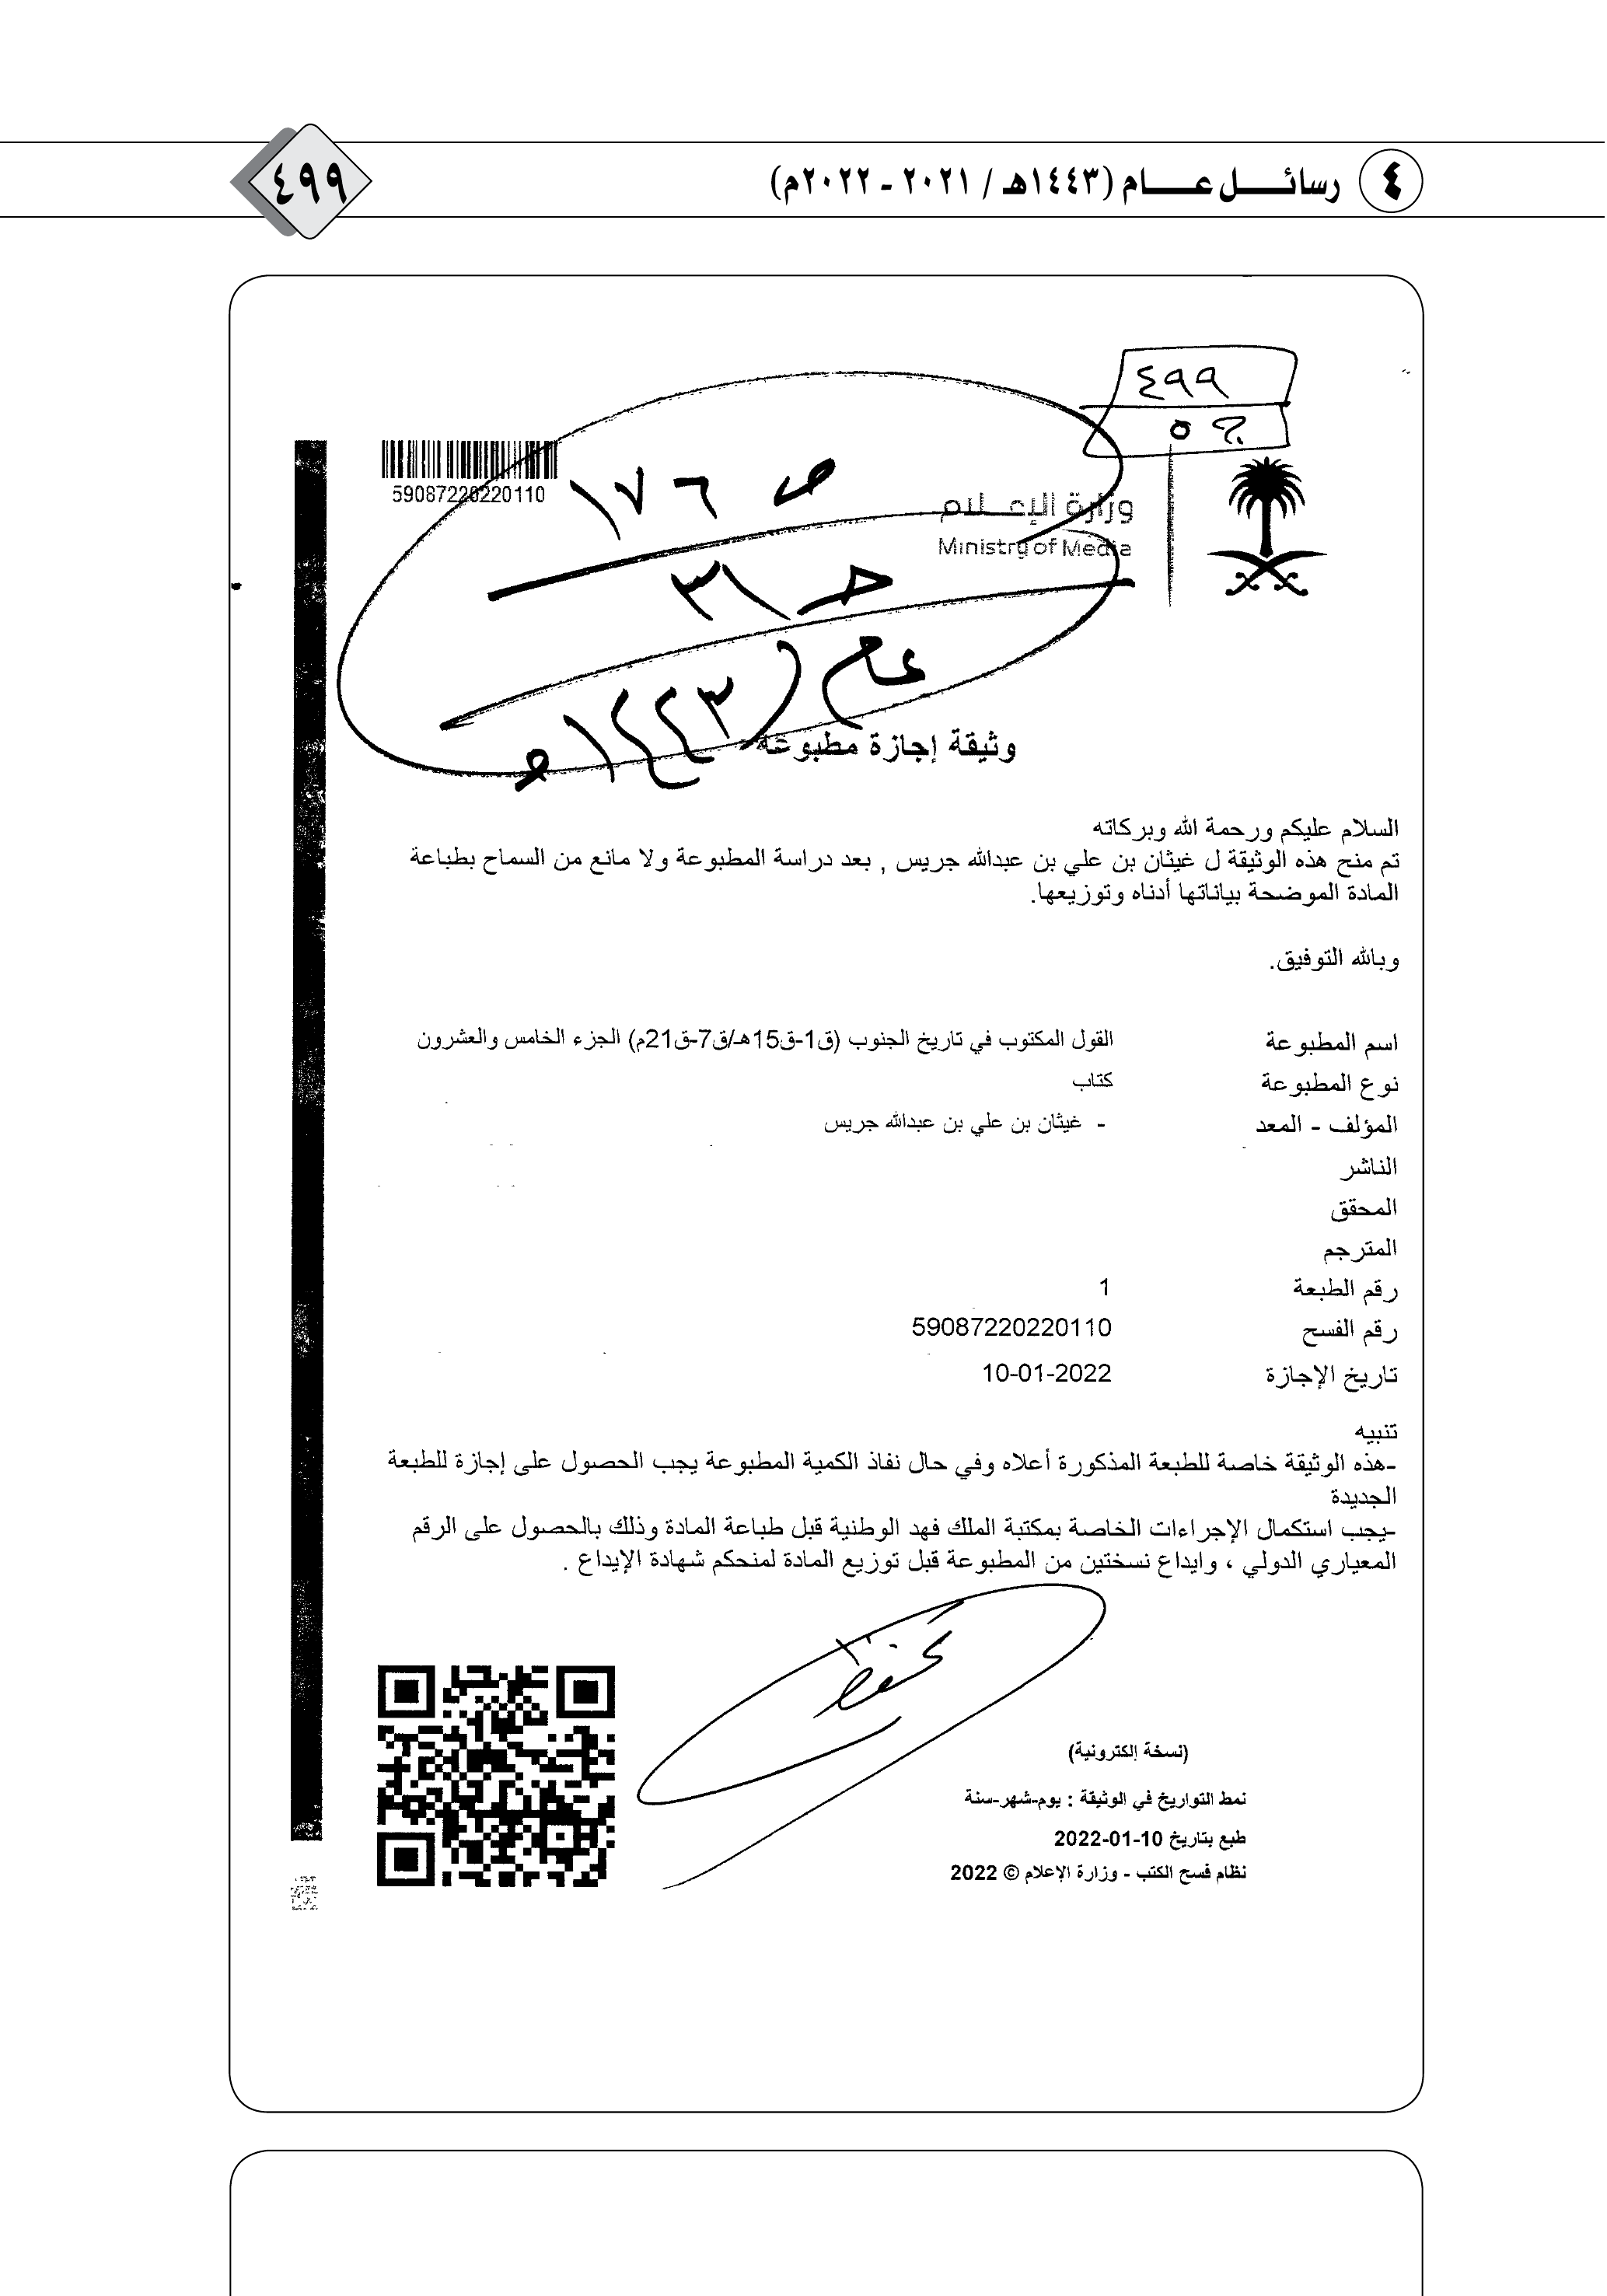 ٤ رسائل عام (١٤٤٣هـ / ٢٠٢١ - ٢٠٢٢م) ٤٩٩
٤٩٩
وزارة الإعلام
Ministry of Media
59087220220110
ص ١٧٦
حـ ٣١
عام (١٤٤٣هـ
وثيقة إجازة مطبوعة
السلام عليكم ورحمة الله وبركاته
تم منح هذه الوثيقة ل غيثان بن علي بن عبدالله جريس , بعد دراسة المطبوعة ولا مانع من السماح بطباعة
المادة الموضحة بياناتها أدناه وتوزيعها.
وبالله التوفيق.
اسم المطبوعة القول المكتوب في تاريخ الجنوب (ق1-ق15هـ/ق7-ق21م) الجزء الخامس والعشرون
نوع المطبوعة كتاب
المؤلف - المعد - غيثان بن علي بن عبدالله جريس
الناشر
المحقق
المترجم
رقم الطبعة 1
رقم الفسح 59087220220110
تاريخ الإجازة 10-01-2022
تنبيه
-هذه الوثيقة خاصة للطبعة المذكورة أعلاه وفي حال نفاذ الكمية المطبوعة يجب الحصول على إجازة للطبعة
الجديدة
-يجب استكمال الإجراءات الخاصة بمكتبة الملك فهد الوطنية قبل طباعة المادة وذلك بالحصول على الرقم
المعياري الدولي ، وايداع نسختين من المطبوعة قبل توزيع المادة لمنحكم شهادة الإيداع .
(نسخة إلكترونية)
نمط التواريخ في الوثيقة : يوم-شهر-سنة
طبع بتاريخ 10-01-2022
نظام فسح الكتب - وزارة الإعلام © 2022